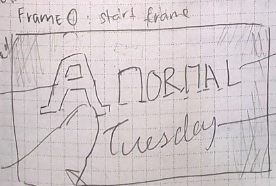 Frame ①: start frame
A NORMAL
Tuesday